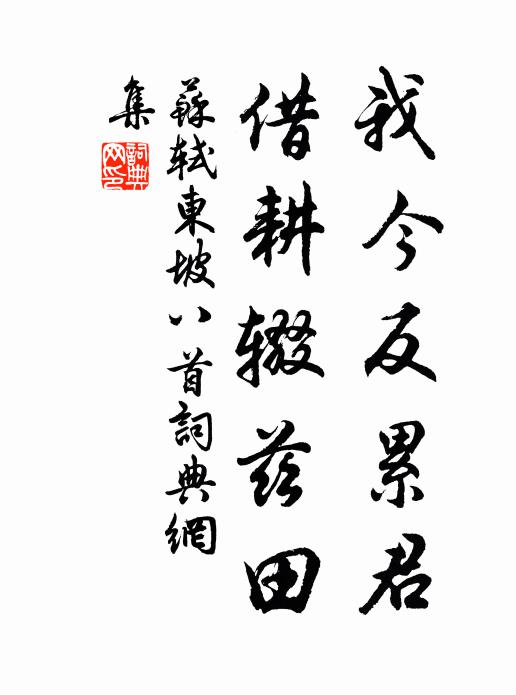 我今反累君
借耕辍兹田
蘇軾東坡八首詞典網
集
詞典
网印